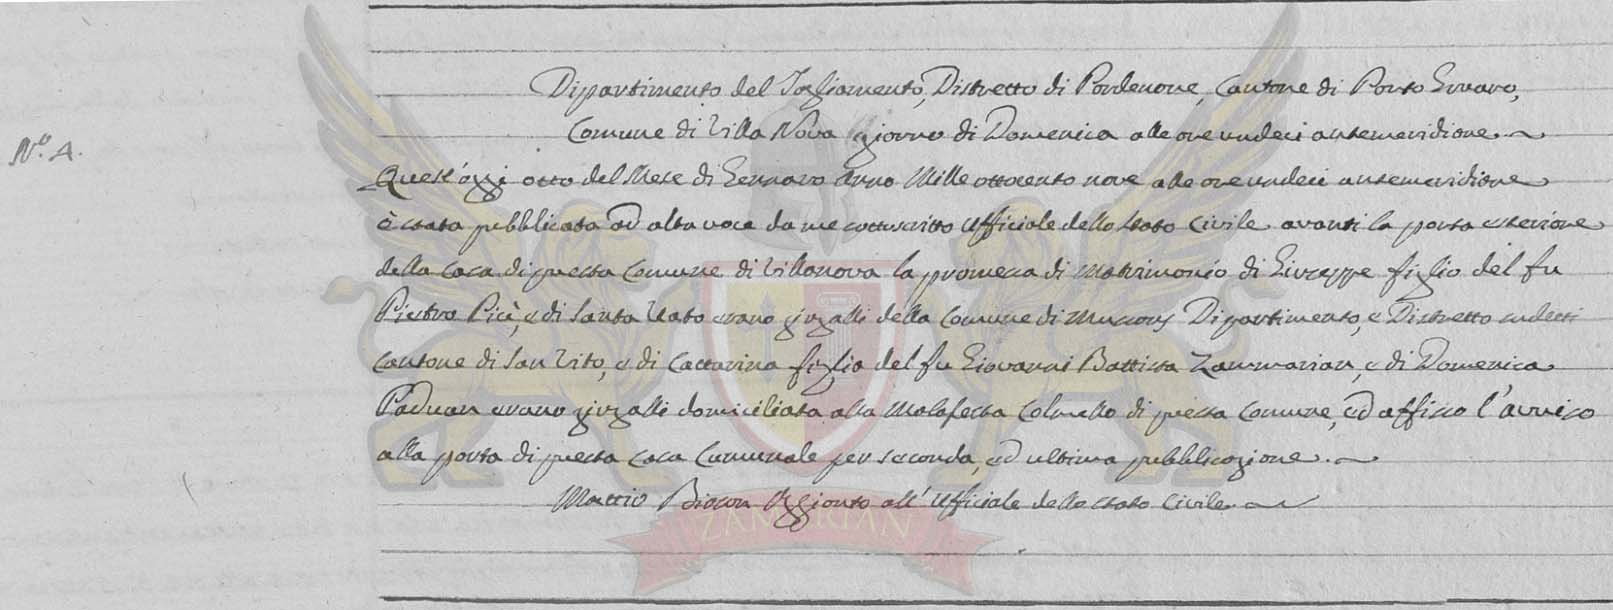 Dipartimento del Tagliamento, Distretto di Pordenone, Cantone di Porto Gruaro,
Comune di Villa Nova giorno di Domenica alle ore undeci antemeridione
N.º 4.
Quest'oggi otto del Mese di Gennaro Anno Mille ottocento nove alle ore undeci antemeridione
è stata pubblicata ad alta voce da me sottoscritto Ufficiale dello Stato Civile avanti la porta esteriore
della Casa di questa Comune di Villanova la promessa di Matrimonio di Giuseppe figlio del fu
Pietro e di Santa della Comune di Dipartimento, e Distretto sudetti
Cantone di San Vito, e di Cattarina figlia del fu Giovanni Battista Zanmarian, e di Domenica
Paduan domiciliata alla Malafesta Colmello di questa Comune, ed affisso l'avviso
alla porta di questa casa Comunale per seconda, ed ultima pubblicazione.
Mattio Aggionto all'Ufficiale dello Stato Civile